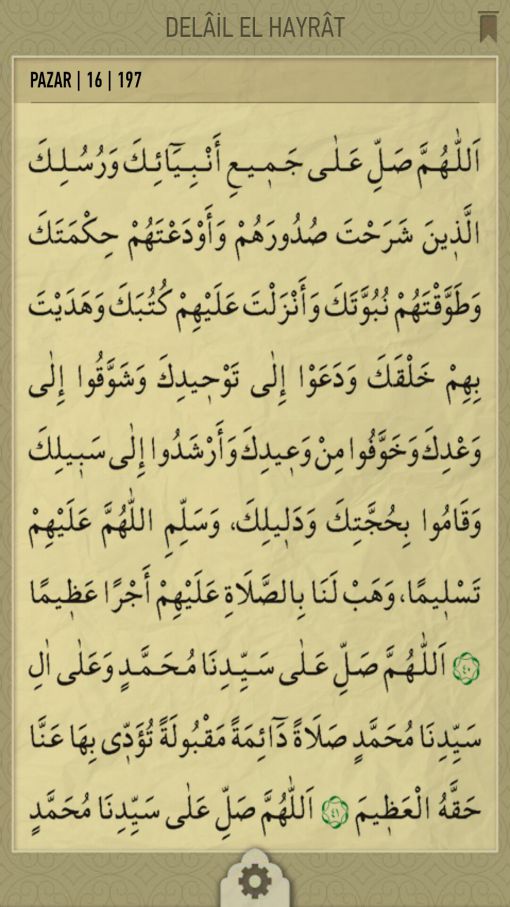 DELÂİL EL HAYRÂT
PAZAR | 16 | 197
اَللّٰهُمَّ صَلِّ عَلٰى جَمٖيعِ أَنْبِيَٓائِكَ وَرُسُلِكَ
الَّذٖينَ شَرَحْتَ صُدُورَهُمْ وَأَوْدَعْتَهُمْ حِكْمَتَكَ
وَطَوَّقْتَهُمْ نُبُوَّتَكَ وَأَنْزَلْتَ عَلَيْهِمْ كُتُبَكَ وَهَدَيْتَ
بِهِمْ خَلْقَكَ وَدَعَوْا إِلٰى تَوْحٖيدِكَ وَشَوَّقُوا إِلٰى
وَعْدِكَ وَخَوَّفُوا مِنْ وَعٖيدِكَ وَأَرْشَدُوا إِلٰى سَبٖيلِكَ
وَقَامُوا بِحُجَّتِكَ وَدَلٖيلِكَ، وَسَلِّمِ اللّٰهُمَّ عَلَيْهِمْ
تَسْلٖيمًا، وَهَبْ لَنَا بِالصَّلَاةِ عَلَيْهِمْ أَجْرًا عَظٖيمًا
٤٠ اَللّٰهُمَّ صَلِّ عَلٰى سَيِّدِنَا مُحَمَّدٍ وَعَلٰى اٰلِ
سَيِّدِنَا مُحَمَّدٍ صَلَاةً دَٓائِمَةً مَقْبُولَةً تُؤَدّٖى بِهَا عَنَّا
حَقَّهُ الْعَظٖيمَ ٤١ اَللّٰهُمَّ صَلِّ عَلٰى سَيِّدِنَا مُحَمَّدٍ